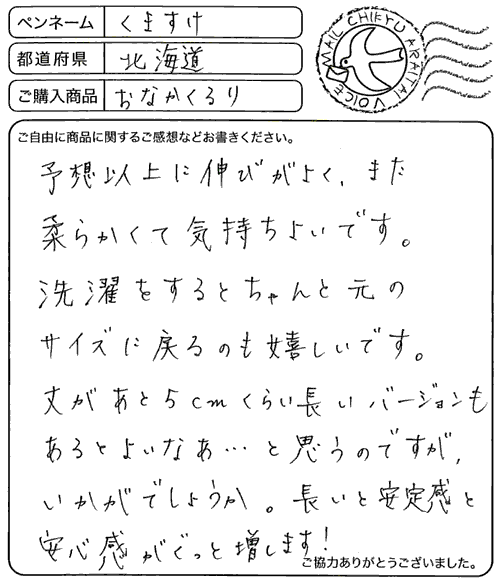 ペンネーム くますけ
都道府県 北海道
ご購入商品 おなかくるり
MAIL CHIKYU ARAITAI VOICE
ご自由に商品に関するご感想などお書きください。
予想以上に伸びがよく、また
柔らかくて気持ちよいです。
洗濯をするとちゃんと元の
サイズに戻るのも嬉しいです。
丈があと5cmくらい長いバージョンも
あるとよいなぁ…と思うのですが、
いかがでしょうか。長いと安定感と
安心感がぐっと増します!
ご協力ありがとうございました。